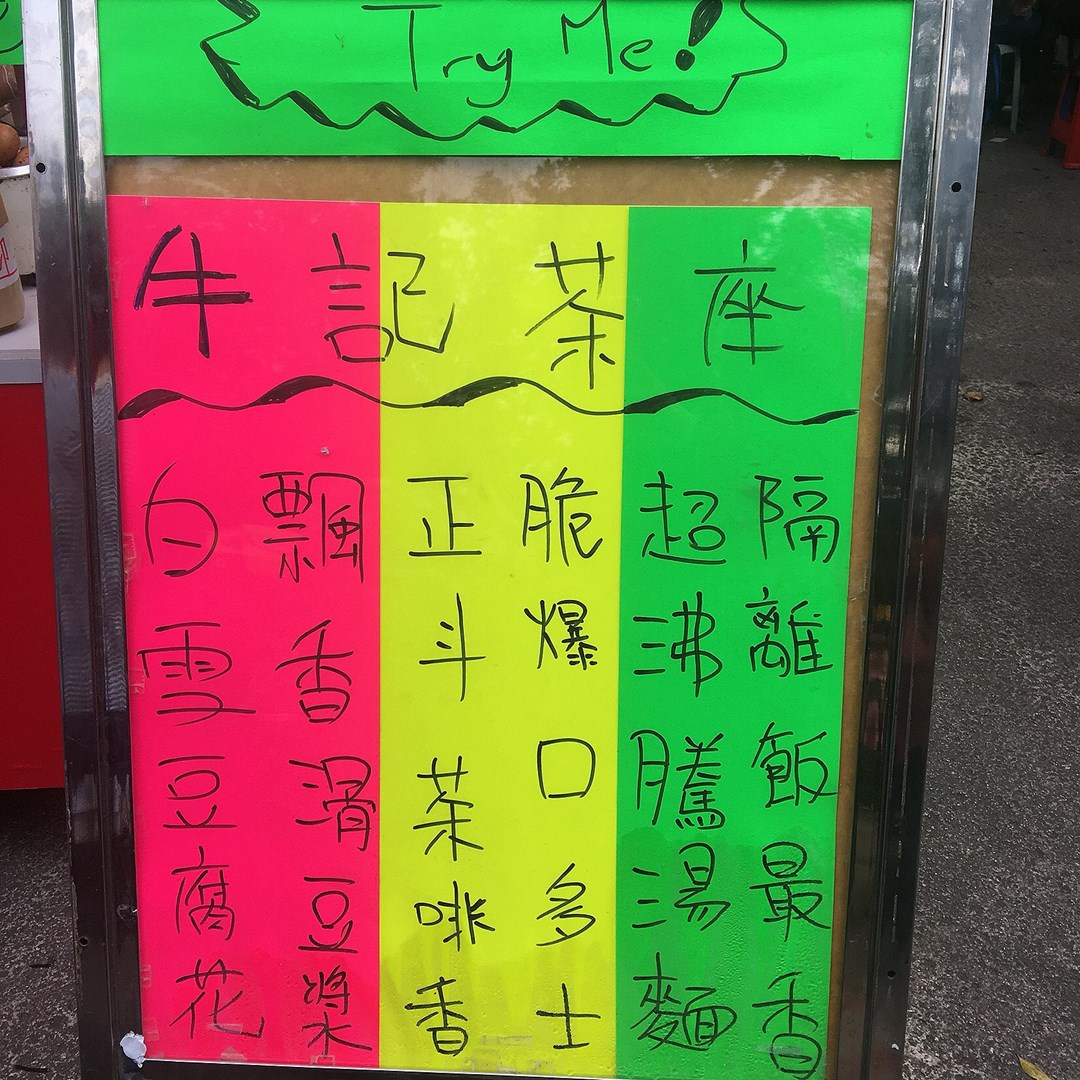 Try Me!
牛記茶座
隔離飯最香
超沸騰湯麵
脆爆口多士
正斗茶啡香
飄香滑豆漿
白雪豆腐花